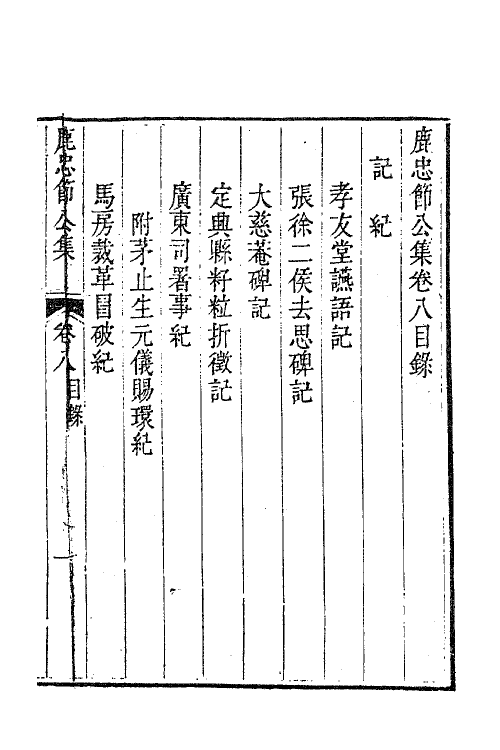 鹿忠節公集卷八目錄
記 紀
孝友堂讌語記
張徐二侯去思碑記
大慈菴碑記
定興縣籽粒折徵記
廣東司署事紀
附茅止生元儀賜環紀
馬房裁革冒破紀
鹿忠節公集 卷八 目錄 一